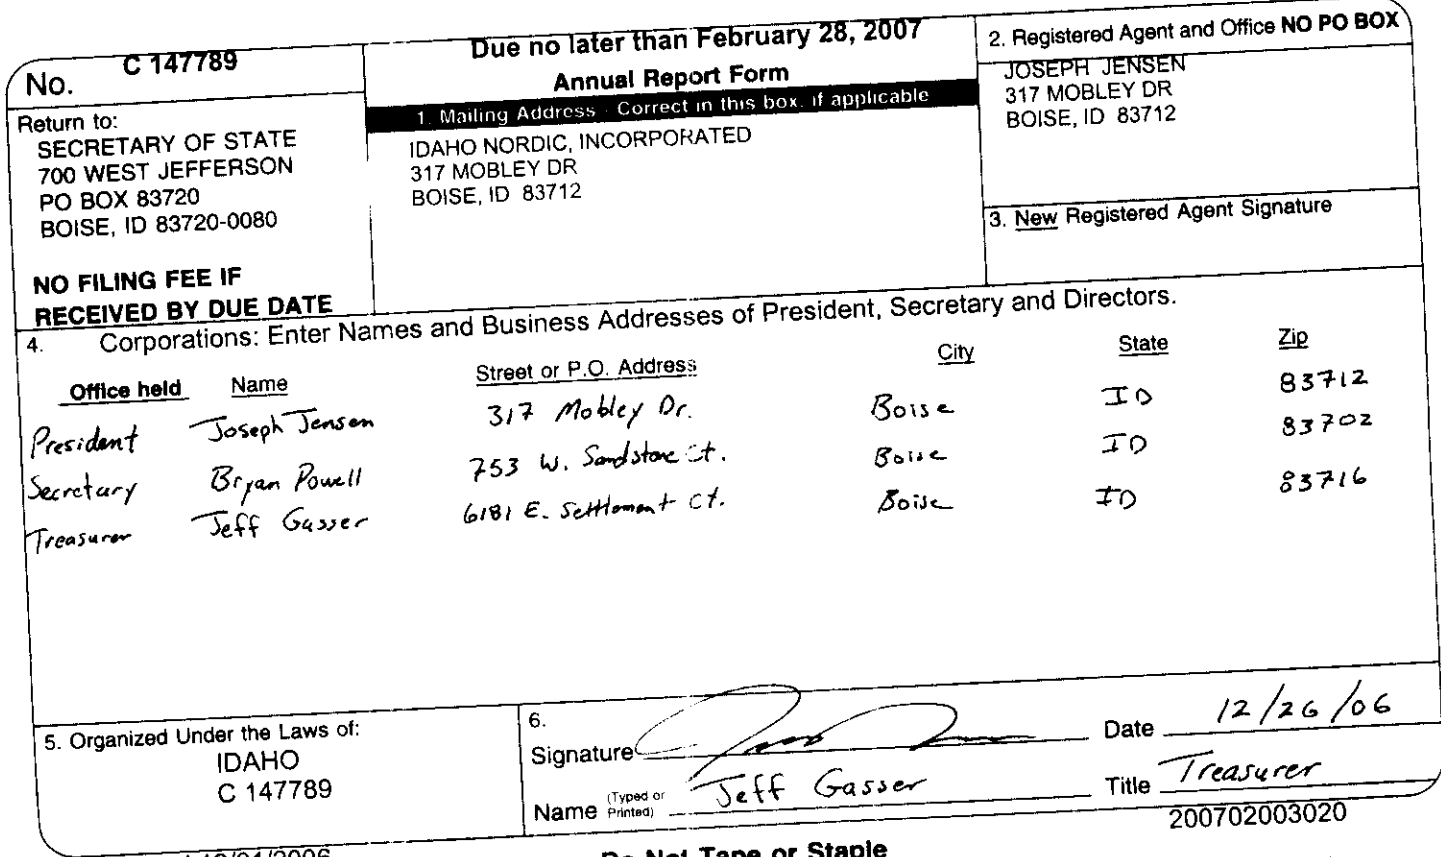 No. C 147789
Return to:
SECRETARY OF STATE
700 WEST JEFFERSON
PO BOX 83720
BOISE, ID 83720-0080
NO FILING FEE IF
RECEIVED BY DUE DATE
Due no later than February 28, 2007
Annual Report Form
1. Mailing Address - Correct in this box, if applicable
IDAHO NORDIC, INCORPORATED
317 MOBLEY DR
BOISE, ID 83712
2. Registered Agent and Office NO PO BOX
JOSEPH JENSEN
317 MOBLEY DR
BOISE, ID 83712
3. New Registered Agent Signature
4. Corporations: Enter Names and Business Addresses of President, Secretary and Directors.
Office held Name Street or P.O. Address City State Zip
President Joseph Jensen 317 Mobley Dr. Boise ID 83712
Secretary Bryan Powell 753 W. Sandstone Ct. Boise ID 83702
Treasurer Jeff Gasser 6181 E. Settlement Ct. Boise ID 83716
5. Organized Under the Laws of:
IDAHO
C 147789
6.
Signature Date 12/26/06
Name (Typed or Printed) Jeff Gasser Title Treasurer
200702003020
Do Not Tape or Staple